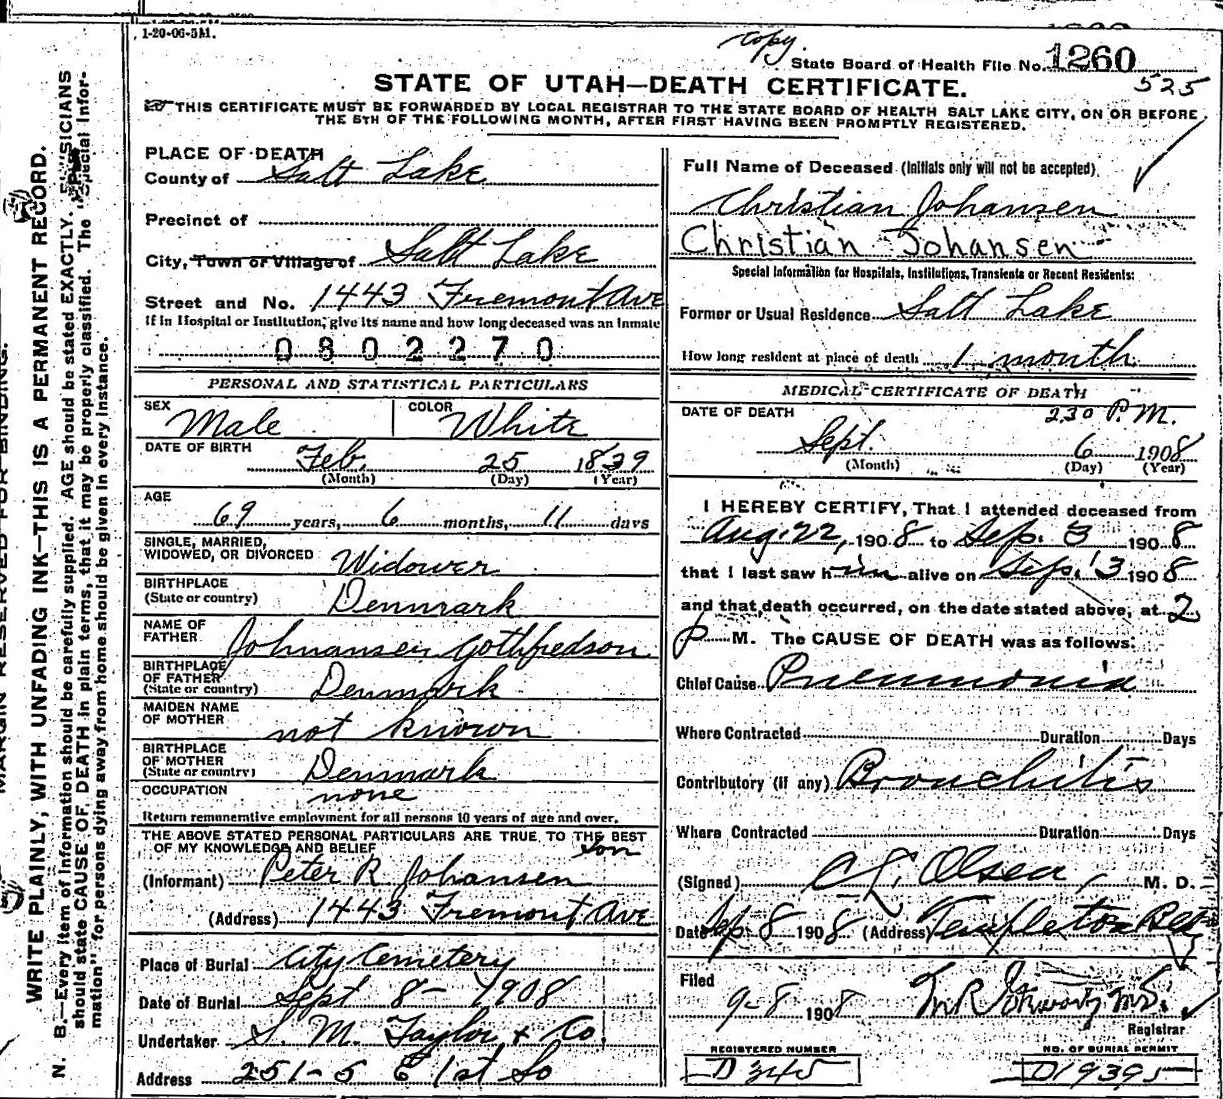 1-20-06-5M.
copy.
State Board of Health File No. 1260
525
STATE OF UTAH—DEATH CERTIFICATE.
THIS CERTIFICATE MUST BE FORWARDED BY LOCAL REGISTRAR TO THE STATE BOARD OF HEALTH SALT LAKE CITY, ON OR BEFORE
THE 5TH OF THE FOLLOWING MONTH, AFTER FIRST HAVING BEEN PROMPTLY REGISTERED.
MARGIN RESERVED FOR BINDING.
WRITE PLAINLY, WITH UNFADING INK—THIS IS A PERMANENT RECORD.
N. B.—Every item of information should be carefully supplied. AGE should be stated EXACTLY. PHYSICIANS
should state CAUSE OF DEATH in plain terms, that it may be properly classified. The "Special Infor-
mation" for persons dying away from home should be given in every instance.
PLACE OF DEATH
County of Salt Lake
Precinct of
City, Town or Village of Salt Lake
Street and No. 1443 Fremont Ave
If in Hospital or Institution, give its name and how long deceased was an inmate
0802270
PERSONAL AND STATISTICAL PARTICULARS
SEX Male COLOR White
DATE OF BIRTH Feb. 25 1839
(Month) (Day) (Year)
AGE
69 years, 6 months, 11 days
SINGLE, MARRIED,
WIDOWED, OR DIVORCED Widower
BIRTHPLACE
(State or country) Denmark
NAME OF
FATHER Johnansen Gothfredson
BIRTHPLACE
OF FATHER
(State or country) Denmark
MAIDEN NAME
OF MOTHER not known
BIRTHPLACE
OF MOTHER
(State or country) Denmark
OCCUPATION none
Return remunerative employment for all persons 10 years of age and over.
THE ABOVE STATED PERSONAL PARTICULARS ARE TRUE TO THE BEST
OF MY KNOWLEDGE AND BELIEF Son
(Informant) Peter R Johansen
(Address) 1443 Fremont Ave
Place of Burial City Cemetery
Date of Burial Sept 8- 1908
Undertaker S. M. Taylor & Co.
Address 251-5 E 1st So
Full Name of Deceased (Initials only will not be accepted)
Christian Johansen
Christian Johansen
Special Information for Hospitals, Institutions, Transients or Recent Residents:
Former or Usual Residence Salt Lake
How long resident at place of death 1 month
MEDICAL CERTIFICATE OF DEATH
DATE OF DEATH 2.30 P.M.
Sept. 6 1908
(Month) (Day) (Year)
I HEREBY CERTIFY, That I attended deceased from
Aug. 22, 1908 to Sep. 3 1908
that I last saw him alive on Sep. 3 1908
and that death occurred, on the date stated above, at 2
P M. The CAUSE OF DEATH was as follows:
Chief Cause Pneumonia
Where Contracted Duration Days
Contributory (if any) Bronchitis
Where Contracted Duration Days
(Signed) C L. Olsen, M. D.
Date Sep. 8 1908 (Address) Templeton
Filed
9-8 1908
Registrar
REGISTERED NUMBER
D 345
NO. OF BURIAL PERMIT
D19395